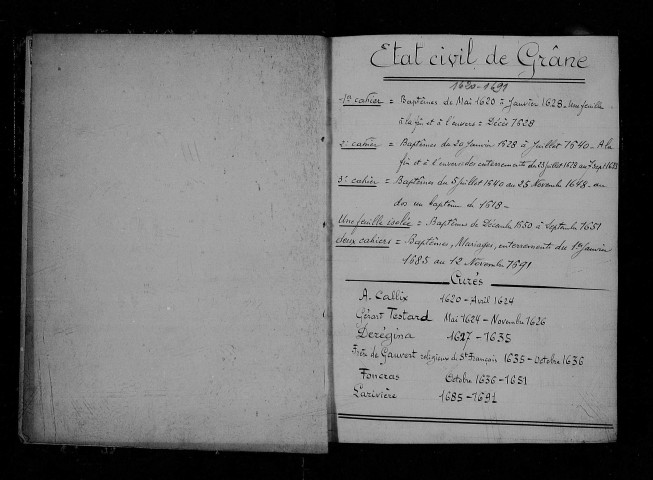 Etat civil de Grâne
1620-1691
1er cahier = Baptêmes de Mai 1620 à Janvier 1628 - Une feuille
à la fin et à l'envers = Décès 1628
2e cahier = Baptêmes du 29 Janvier 1628 à Juillet 1640 - A la
fin et à l'envers des enterrements du 23 juillet 1628 au 7 Sept 1638
3e cahier = Baptêmes du 5 juillet 1640 au 25 Novembre 1648 - au
dos un baptême de 1618 -
Une feuille isolée = Baptêmes de Décembre 1650 à Septembre 1651
deux cahiers = Baptêmes, Mariages, enterrements du 1er Janvier
1685 au 12 Novembre 1691
Curés
A. Callix 1620 - Avril 1624
Gérart Testard Mai 1624 - Novembre 1626
Derégina 1627 - 1635
Frère de Gauvert religieux de St François 1635 - Octobre 1636
Foncras Octobre 1636 - 1651
Larivière 1685 - 1691